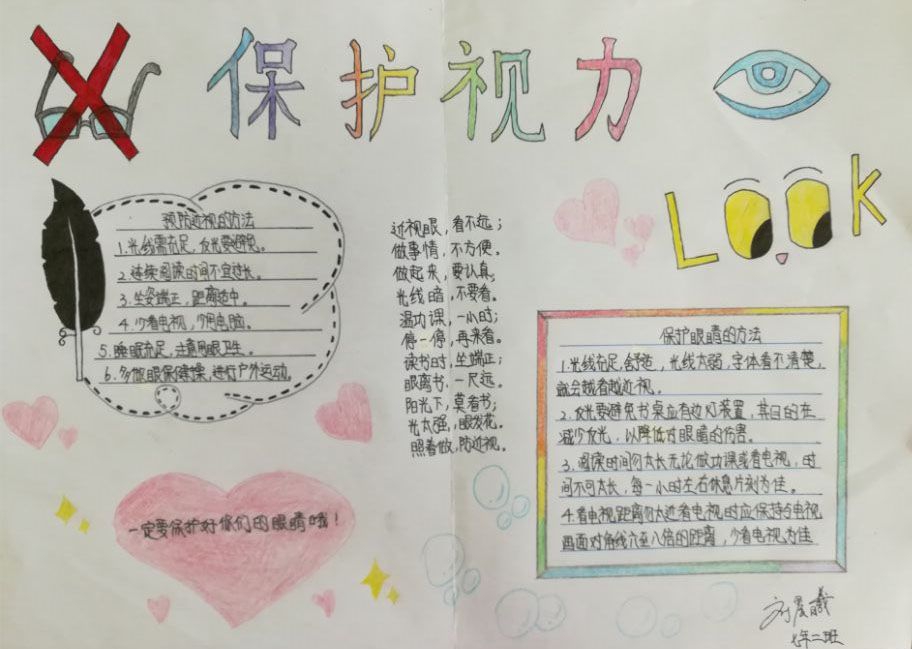 保护视力
LOOK
预防近视的方法
1.光线需充足,反光要避免。
2.连续阅读时间不宜过长。
3.坐姿端正,距离适中。
4.少看电视,少用电脑。
5.睡眠充足,注意用眼卫生。
6.多做眼保健操,进行户外运动。
近视眼,看不远;
做事情,不方便。
做起来,要认真;
光线暗,不要看。
温功课,一小时;
停一停,再来看。
读书时,坐端正;
眼离书,一尺远。
阳光下,莫看书;
光太强,眼发花。
照着做,防近视。
保护眼睛的方法
1.光线充足,舒适,光线太弱,字体看不清楚,
就会越看越近视。
2.反光要避免书桌应有边灯装置,其目的在
减少反光,以降低对眼睛的伤害。
3.阅读时间勿太长无论做功课或看电视,时
间不可太长,每一小时左右休息片刻为佳。
4.看电视距离勿太近看电视时应保持与电视
画面对角线六至八倍的距离,少看电视为佳
一定要保护好你们的眼睛哦!
刘晨曦
七年二班